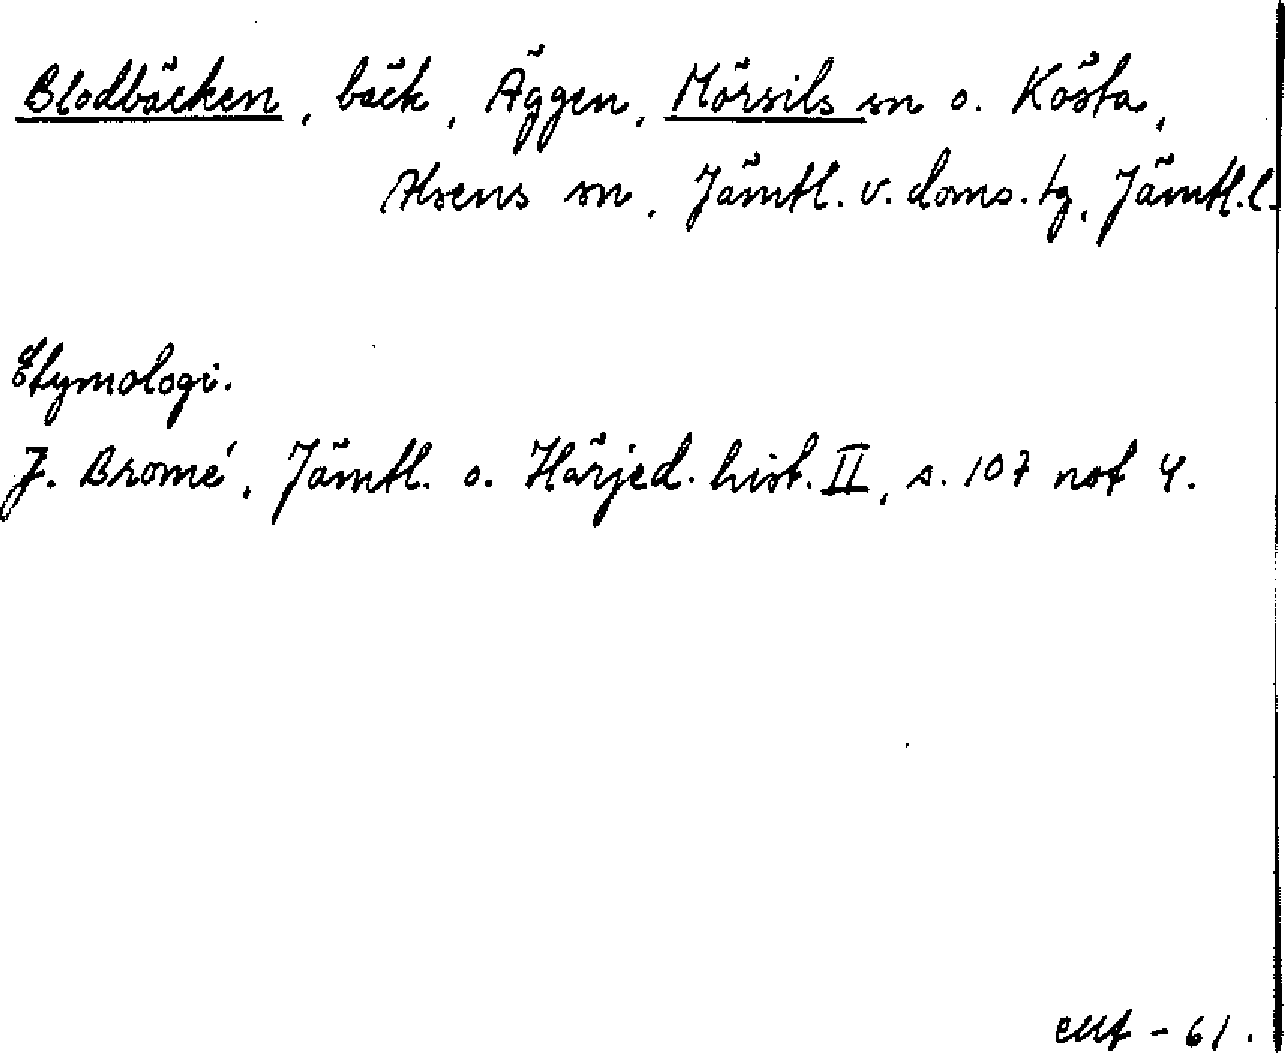 Blodbäcken, bäck, Äggen, Mörsils sn o. Kösta,
Alsens sn, Jämtl. v. doms. tg, Jämtl. l.
Etymologi.
J. Bromé, Jämtl. o. Härjed. hist. II, s. 107 not 4.
- 61.